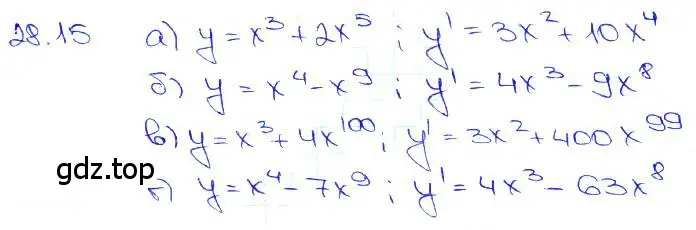 28.15 а) y = x³ + 2x⁵ ; y' = 3x² + 10x⁴
б) y = x⁴ - x⁹ ; y' = 4x³ - 9x⁸
в) y = x³ + 4x¹⁰⁰ ; y' = 3x² + 400x⁹⁹
gdz.top
г) y = x⁴ - 7x⁹ ; y' = 4x³ - 63x⁸